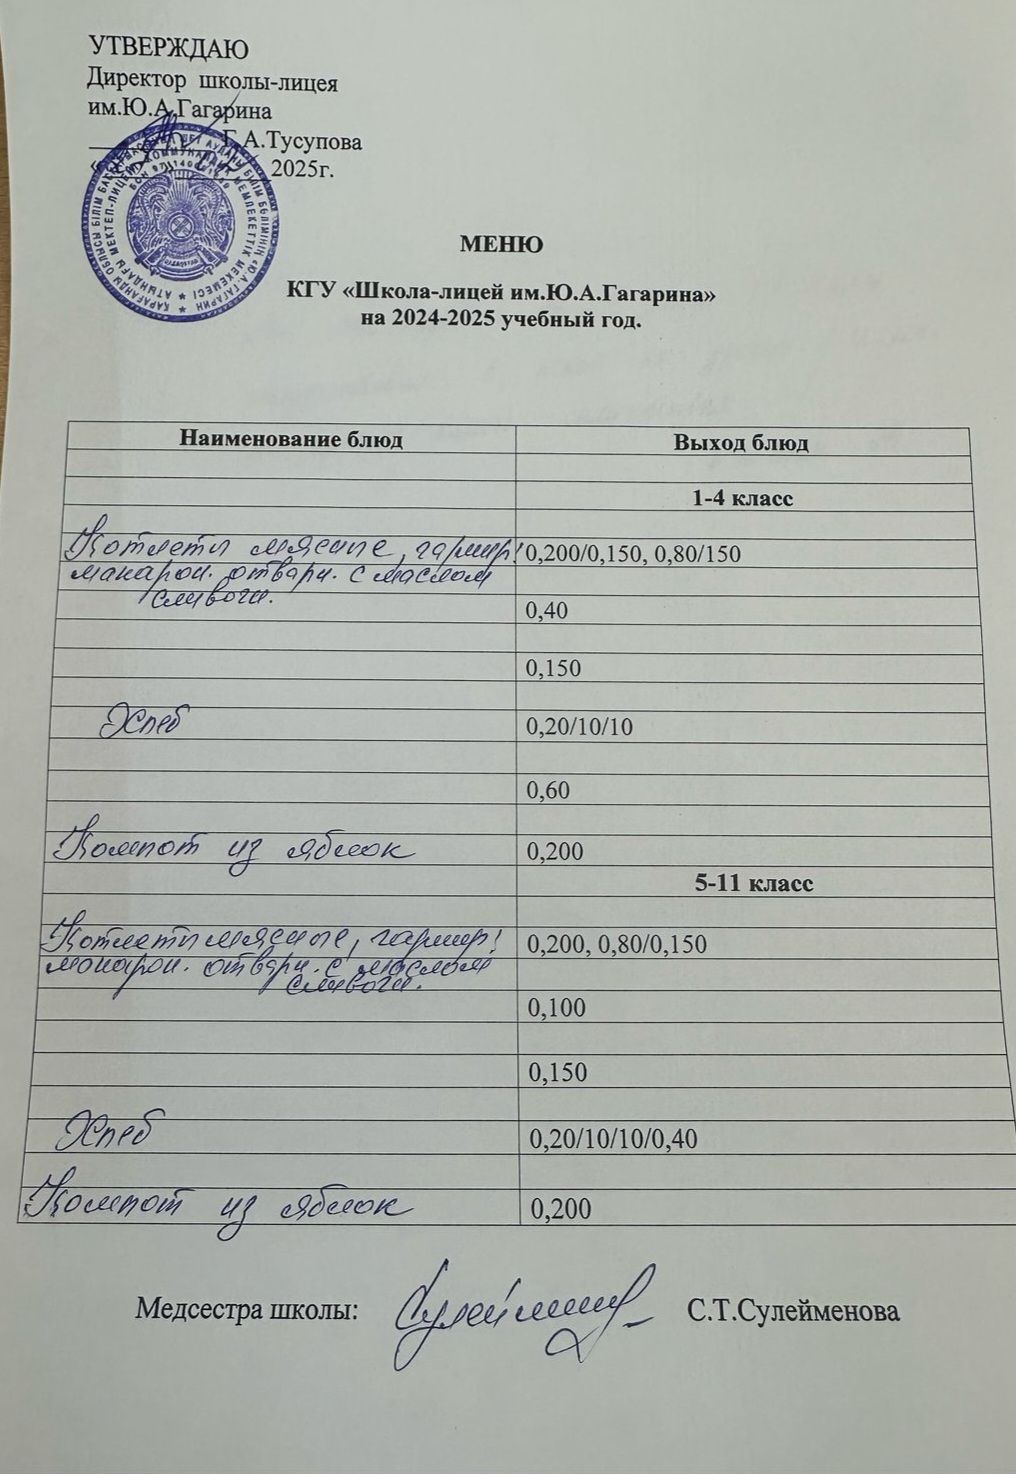 УТВЕРЖДАЮ
Директор школы-лицея
им.Ю.А.Гагарина
Г.А.Тусупова
2025г.
МЕНЮ
КГУ «Школа-лицей им.Ю.А.Гагарина»
на 2024-2025 учебный год.
Наименование блюд Выход блюд
1-4 класс
Котлеты мясные, гарнир: 0,200/0,150, 0,80/150
макарон. отварн. с маслом
сливочн.
0,40
0,150
Хлеб 0,20/10/10
0,60
Компот из яблок 0,200
5-11 класс
Котлеты мясные, гарнир: 0,200, 0,80/0,150
макарон. отварн. с маслом
сливочн.
0,100
0,150
Хлеб 0,20/10/10/0,40
Компот из яблок 0,200
Медсестра школы: С.Т.Сулейменова